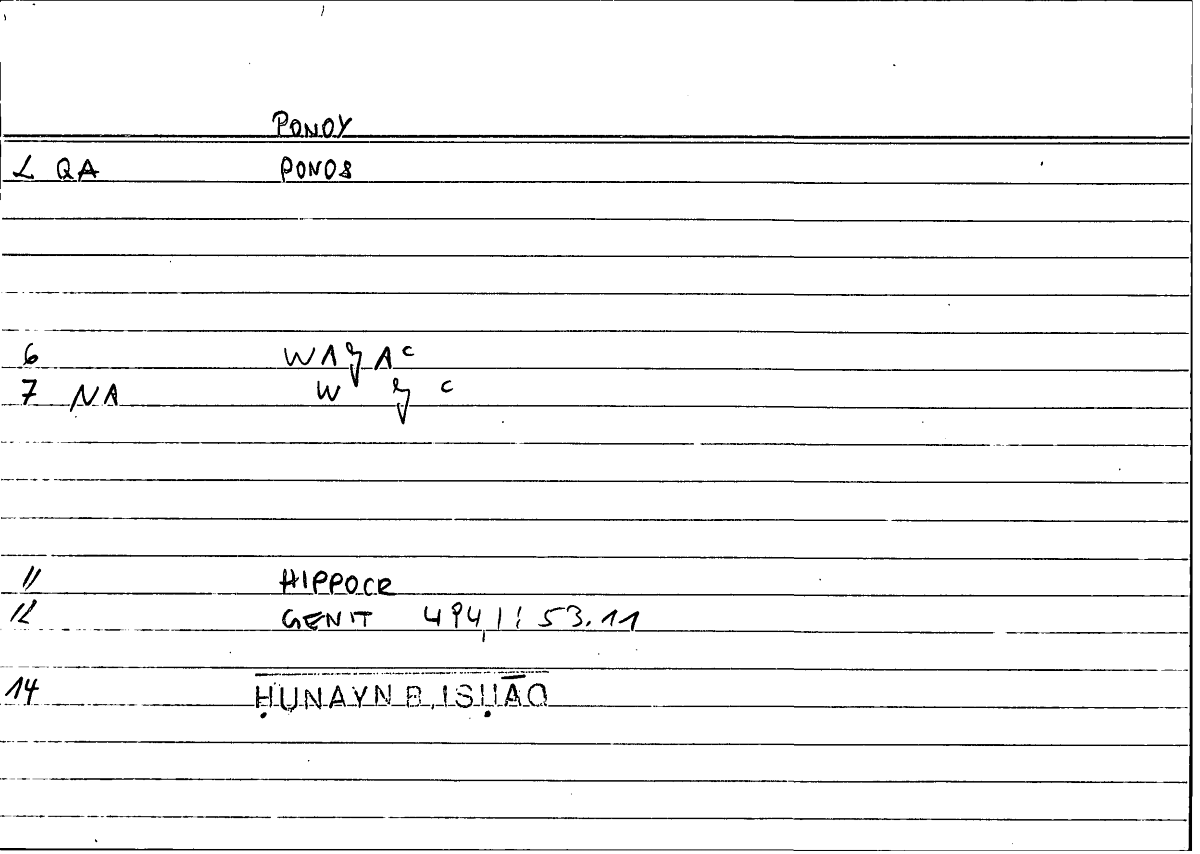 PONOY
L QA PONOS
6 WAȷAᶜ
7 NA W ȷ c
11 HIPPOCR
12 GENIT 494,1; 53.11
14 ḤUNAYN B. ISḤĀQ